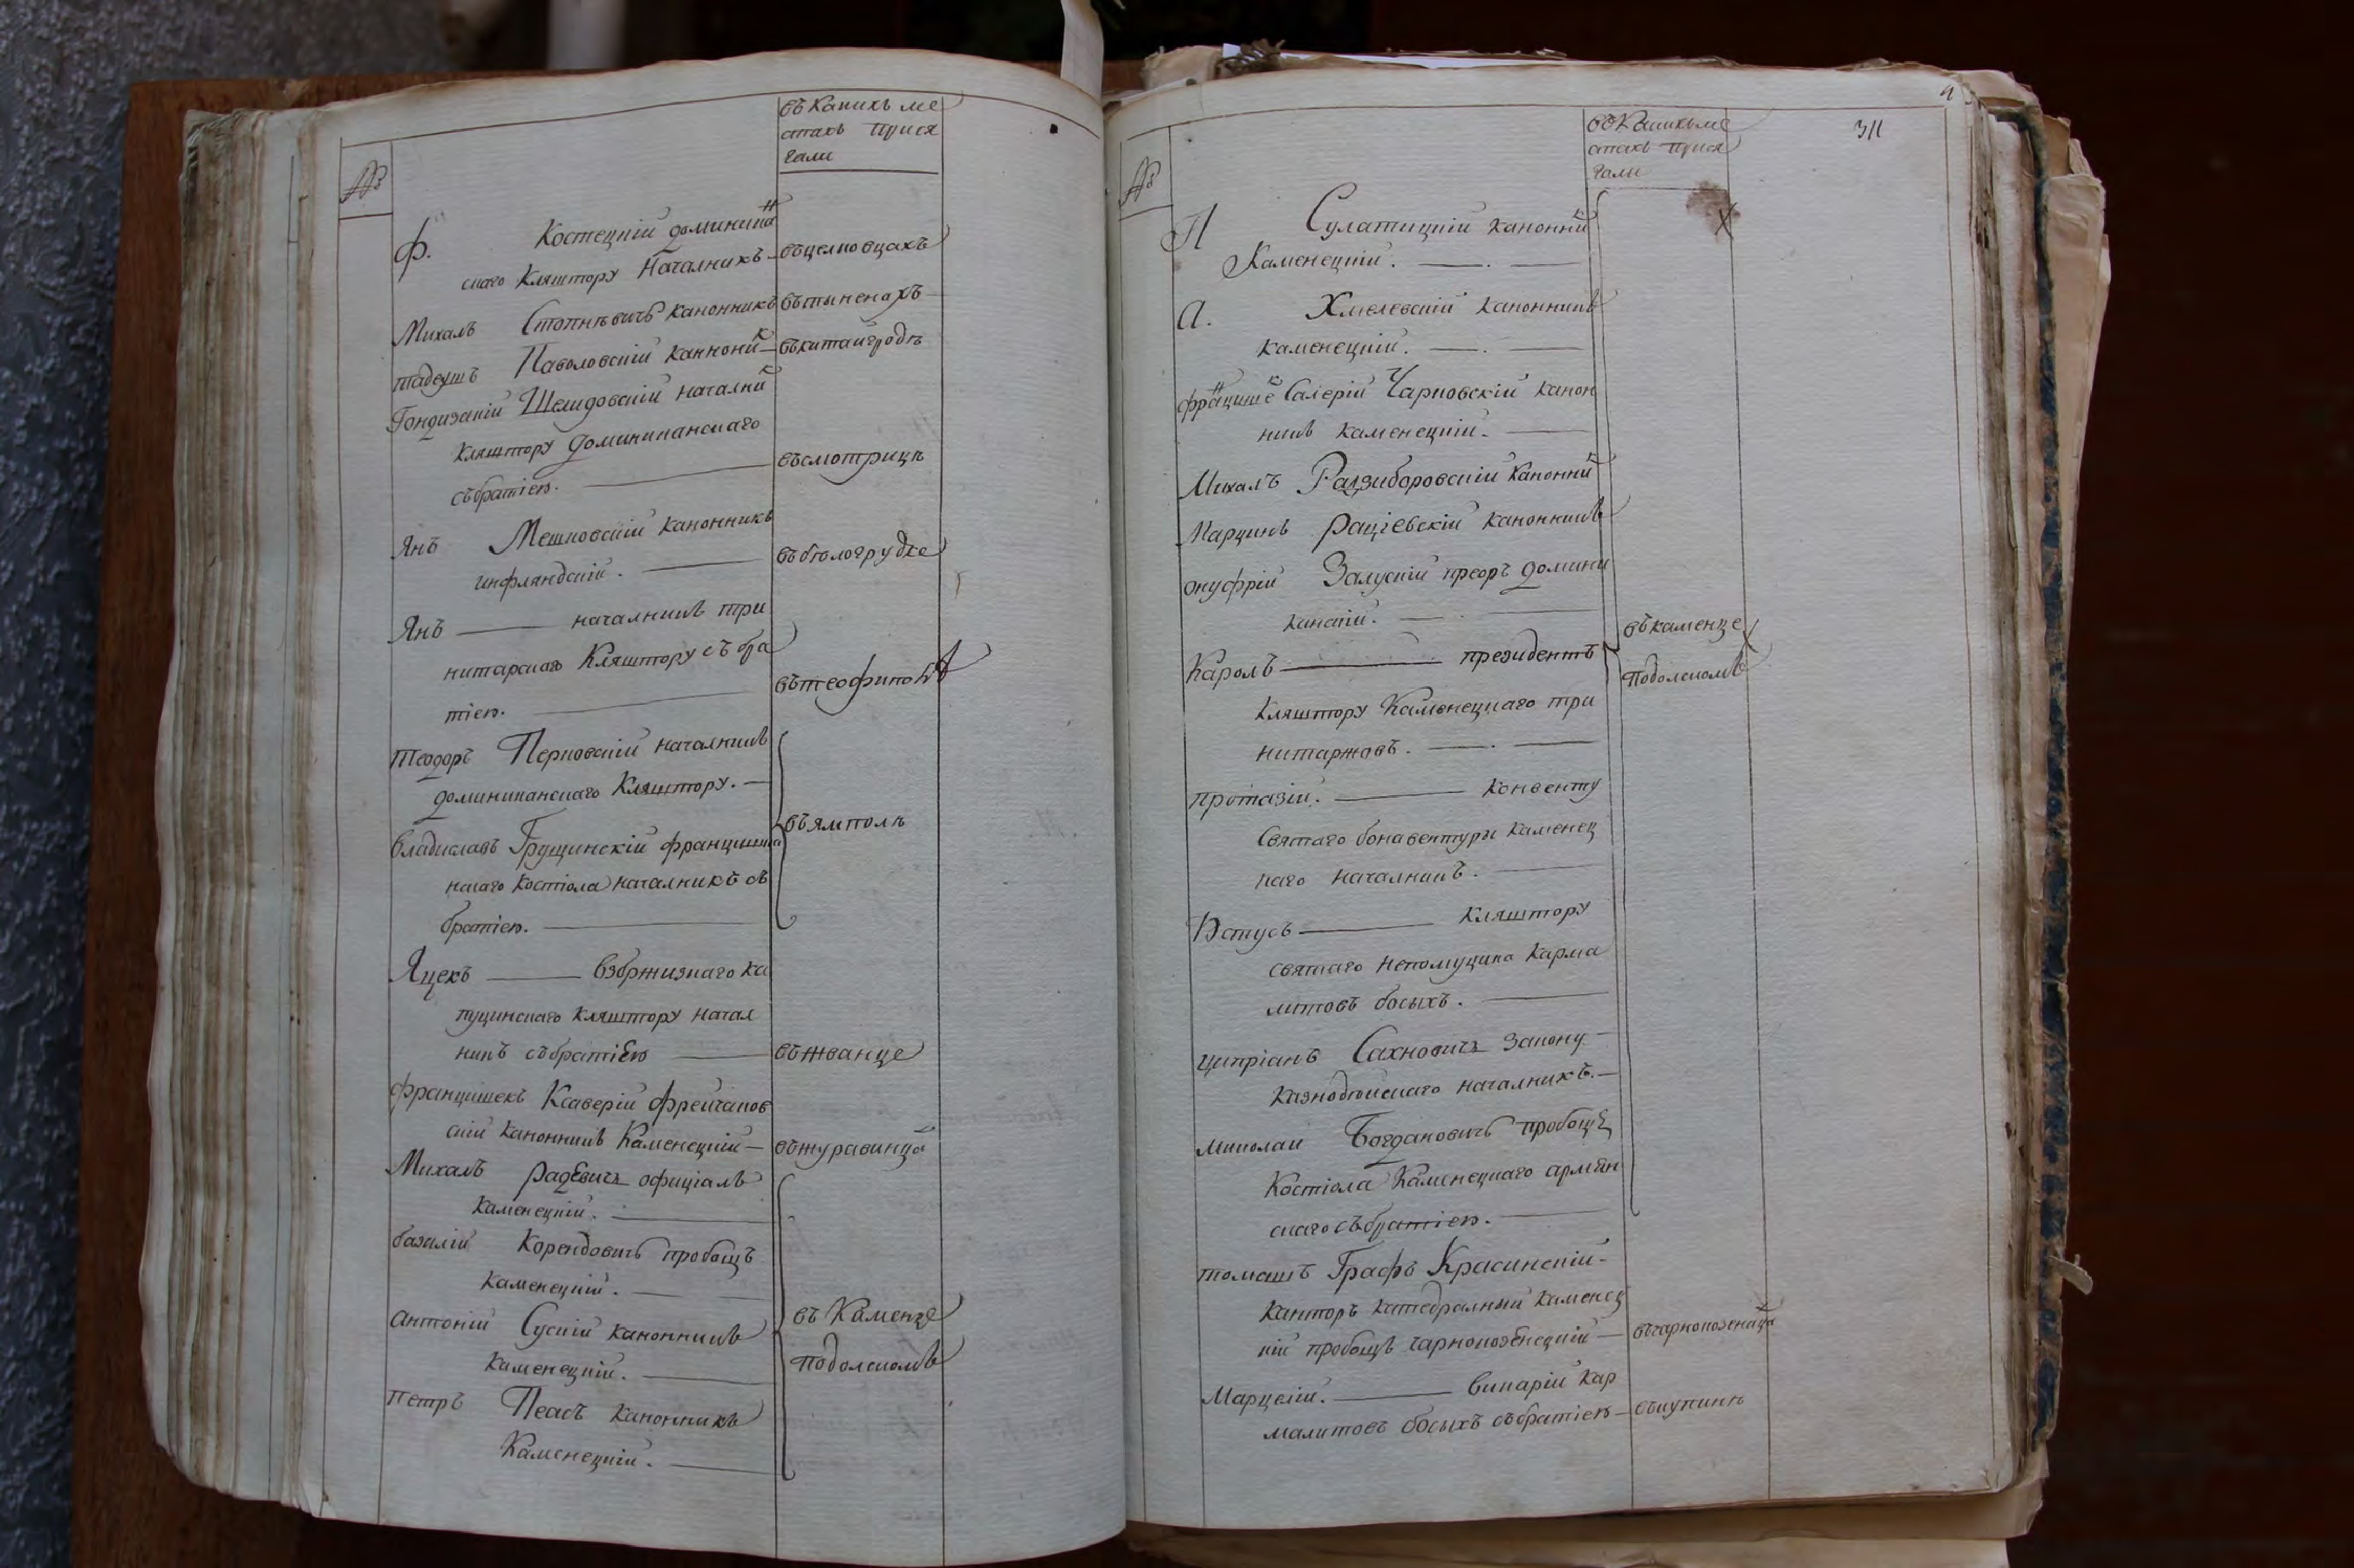 №
въ какихъ ме
стахъ прися
гали
Ф. Костецкій доминикан
скаго кляштору Началникъ - въцелковцахъ
Михалъ Стопневичъ каноникъ въ тыненахъ
тадеушъ Паволовскій каноник - въ китайгроде
Гондизалій Шелидовскій началник
кляштору доминиканскаго
събратіею. въсмотриче
Янъ Мешковскій каноникъ
инфляндскій. въ белогрудке
Янъ началникъ три
нитарскаго Кляштору съ бра
тіею. въ теофиполѣ
Теодоръ Перковскій началникъ
доминиканскаго Кляштору.
владиславъ Грущинскій францишка
нскаго костіола началникъ съ въ ямполѣ
братіею.
Яцекъ взбржизнаго ка
пуцинскаго кляштору начал
никъ събратіею въ жванце
францишекъ Ксаверій Фрейчаков
скій каноникъ Каменецкій въ журавинцах
Михалъ радевичъ официалъ
каменецкій.
базилій Корендовичъ пробощъ
каменецкій.
антоній Сускій каноникъ въ Каменце
каменецкій. Подолскомъ
петръ Пеасъ каноникъ
Каменецкій.
№
въ какихъ ме
стахъ прися
гали
311
П Сулатицкій каноник
Каменецкій.
А. Хмелевскій каноникъ
каменецкій.
францишек Салерій Чарновскій канон
никъ каменецкій.
Михалъ Разиборовскій каноник
Марцинъ рациевскій каноникъ
онуфрій Залускій преоръ домини
канскій.
Каролъ президентъ въ каменце
кляштору Каменецкаго три Подолскомъ
нитаржовъ.
протазій. конвенту
Святаго бонавентуры каменец
каго началникъ.
Юстусъ кляштору
святаго непомуцина карма
литовъ босыхъ.
Ципріанъ Сахновичъ закону
казнодейскаго началникъ.
миколаи Богдановичъ пробощъ
Костіола Каменецкаго армян
скаго събратіею.
томашъ Графъ Красинскій
канторъ катедралный каменец
кій пробощъ чарнокозенецкій въ чарнокозенцах
Марцелій. викарій кар
малитовъ босыхъ събратіею въ купине